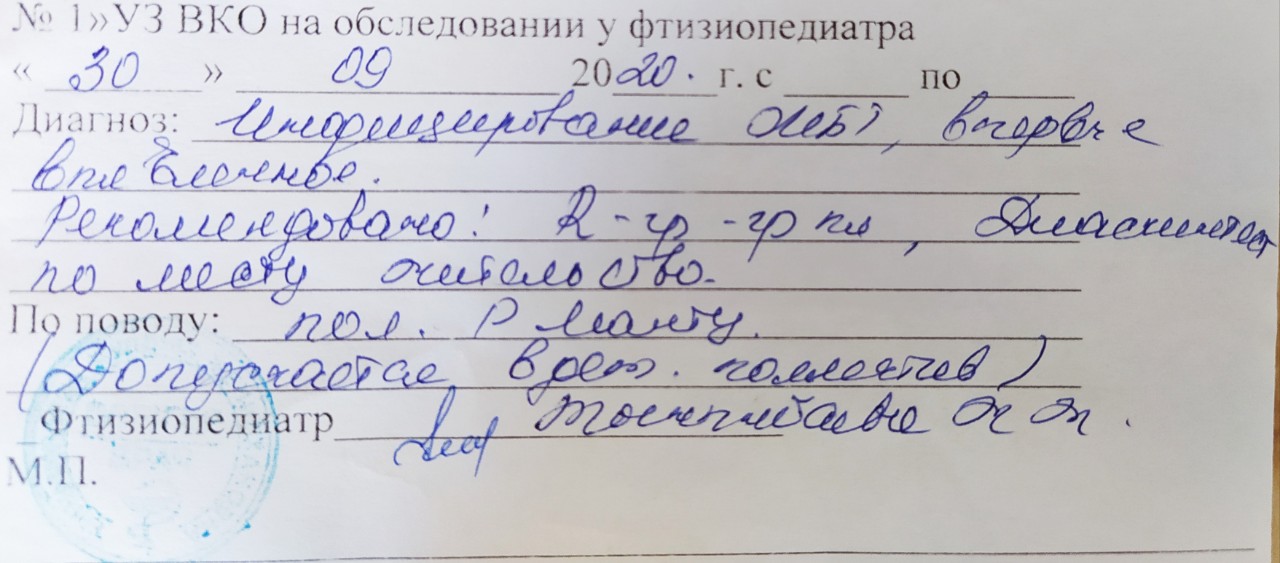 № 1» УЗ ВКО на обследовании у фтизиопедиатра
« 30 » 09 2020. г. с по
Диагноз: Инфицирование МБТ, впервые
выявленное.
Рекомендовано: R-гр-гр кл, Диаскинтест
по месту жительство.
По поводу: пол. Р Манту.
(Допускается в дет. коллектив)
Фтизиопедиатр
М.П.